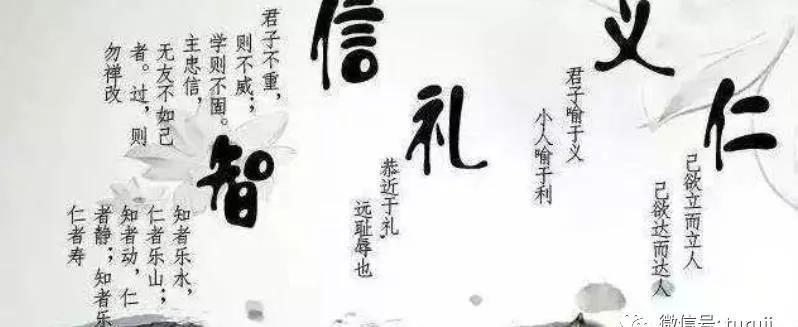 仁
己欲立而立人
己欲达而达人
义
君子喻于义
小人喻于利
礼
恭近于礼,
远耻辱也
信
君子不重,
则不威;
学则不固。
主忠信,
无友不如己
者。过,则
勿禅改
智
知者乐水,
仁者乐山;
知者动,仁
者静;知者乐
仁者寿
微信号: turuji